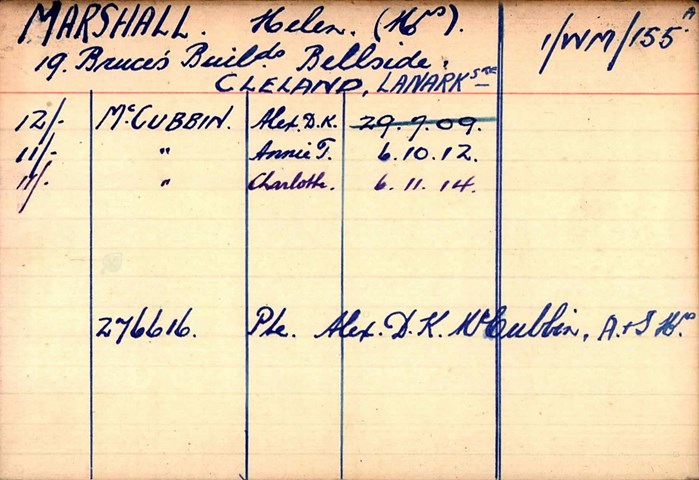 MARSHALL. Helen. (Mrs). 1/WM/155.A
19. Bruce's Builds Bellside.
CLELAND, LANARKSHIRE
12/- McCUBBIN. Alex. D.K. 29.9.09.
11/- " Annie T. 6.10.12.
11/- " Charlotte. 6.11.14.
276616. Pte. Alex. D.K. McCubbin, A.+S Hrs.